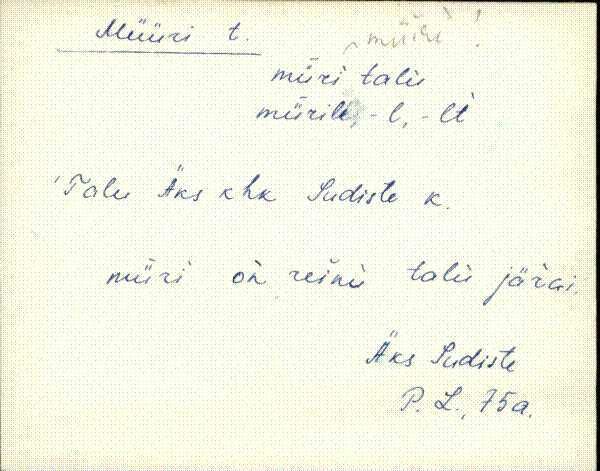 Müüri t. müüri !
müri talu
mürile, -l, -lt
Talu Äks khk Sudiste k.
müri on reinu talu järai.
Äks Sudiste
P. L., 75a.